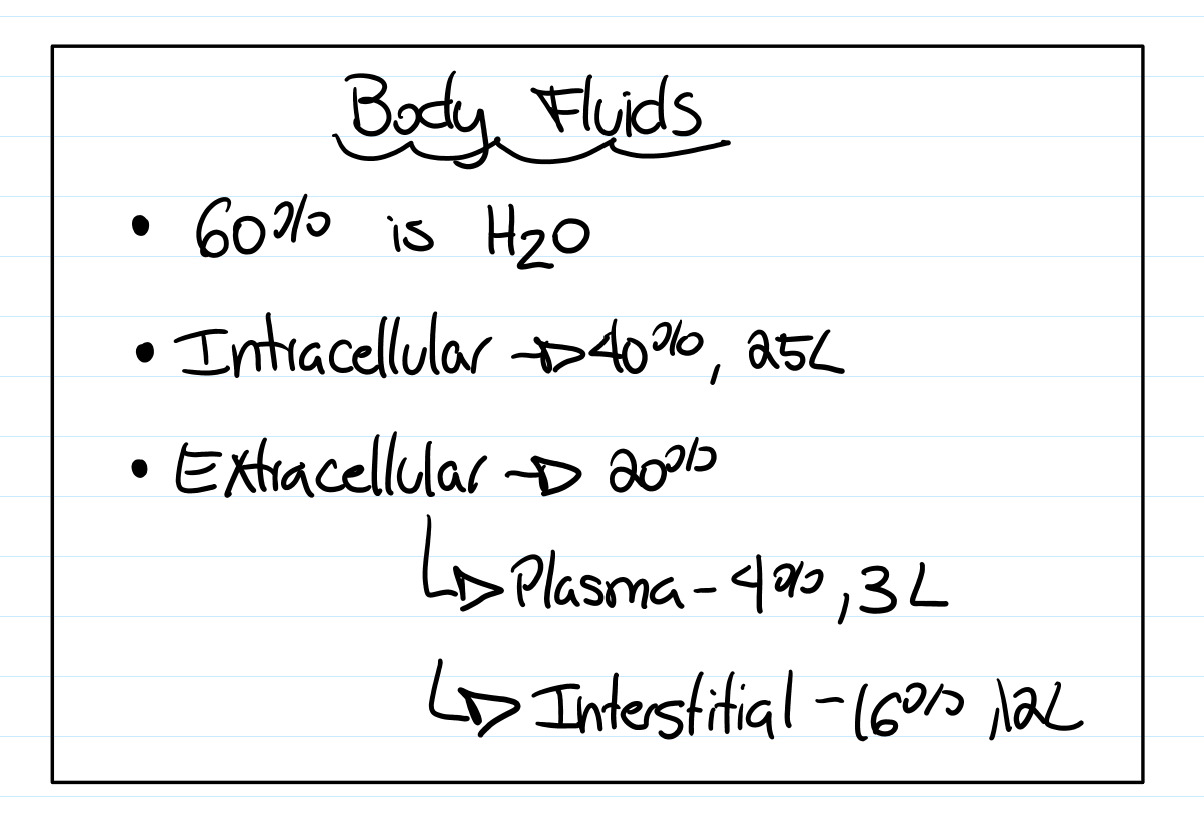 Body Fluids
• 60% is H2O
• Intracellular → 40%, 25L
• Extracellular → 20%
↳ Plasma - 4%, 3L
↳ Interstitial - 16%, 12L